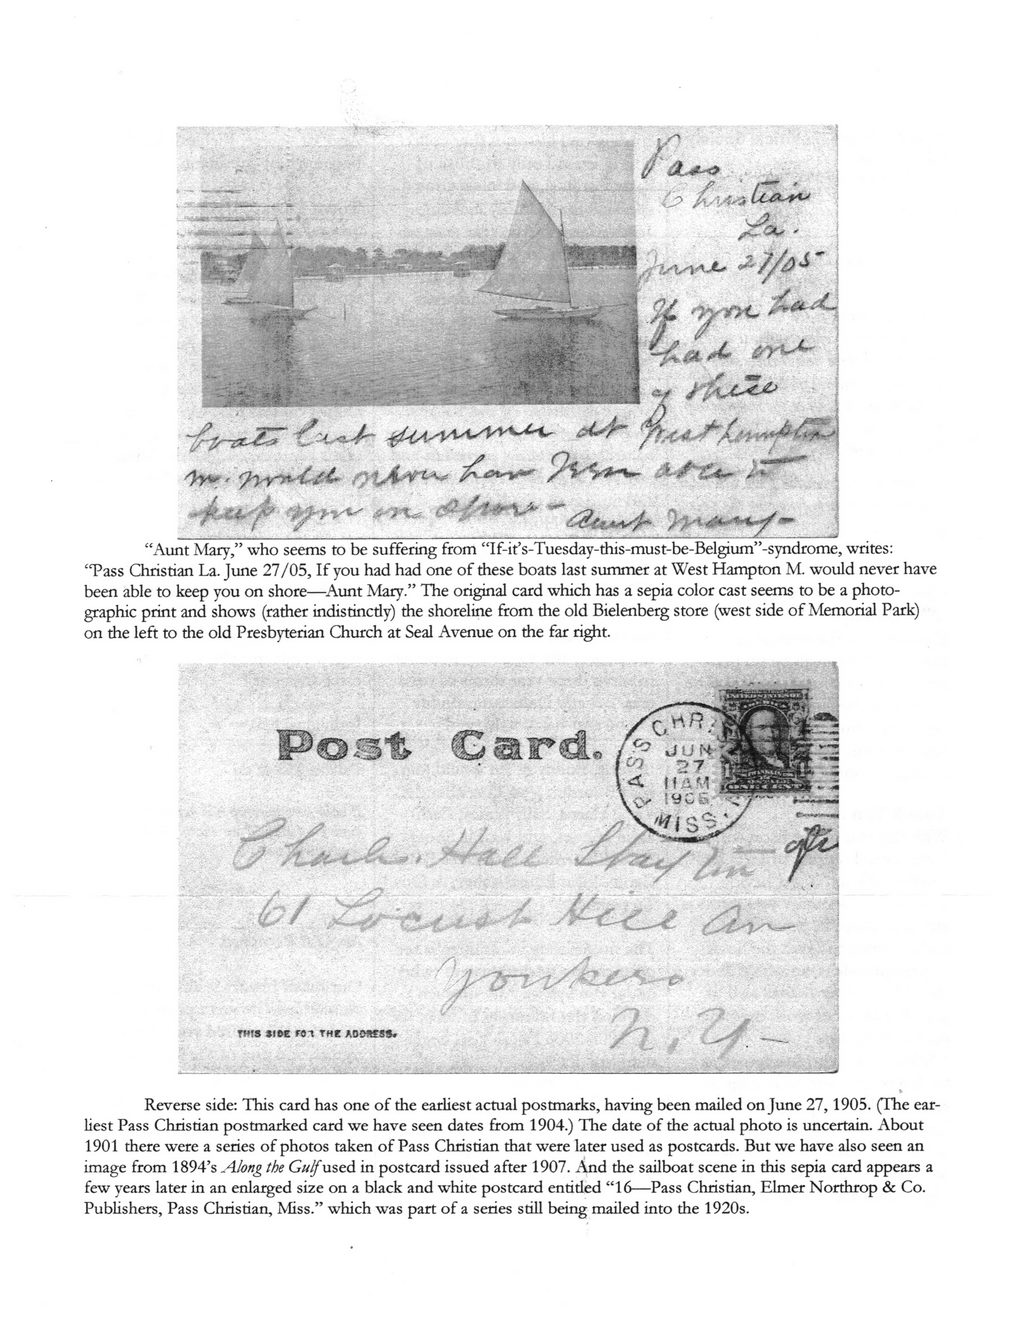 Pass
Christian
La.
June 27/05
If you had
had one
of these
boats last summer at West Hampton
M. would never have been able to
keep you on shore—Aunt Mary—
“Aunt Mary,” who seems to be suffering from “If-it’s-Tuesday-this-must-be-Belgium”-syndrome, writes:
“Pass Christian La. June 27/05, If you had had one of these boats last summer at West Hampton M. would never have
been able to keep you on shore—Aunt Mary.” The original card which has a sepia color cast seems to be a photo-
graphic print and shows (rather indistinctly) the shoreline from the old Bielenberg store (west side of Memorial Park)
on the left to the old Presbyterian Church at Seal Avenue on the far right.
UNITED STATES OF
AMERICA
FRANKLIN
ONE CENT
PASS CHRI
JUN
27
11 AM
1905
MISS.
Post Card.
Charles Hall
61 Locust Hill Av
Yonkers
N.Y—
THIS SIDE FOR THE ADDRESS.
Reverse side: This card has one of the earliest actual postmarks, having been mailed on June 27, 1905. (The ear-
liest Pass Christian postmarked card we have seen dates from 1904.) The date of the actual photo is uncertain. About
1901 there were a series of photos taken of Pass Christian that were later used as postcards. But we have also seen an
image from 1894’s Along the Gulf used in postcard issued after 1907. And the sailboat scene in this sepia card appears a
few years later in an enlarged size on a black and white postcard entitled “16—Pass Christian, Elmer Northrop & Co.
Publishers, Pass Christian, Miss.” which was part of a series still being mailed into the 1920s.